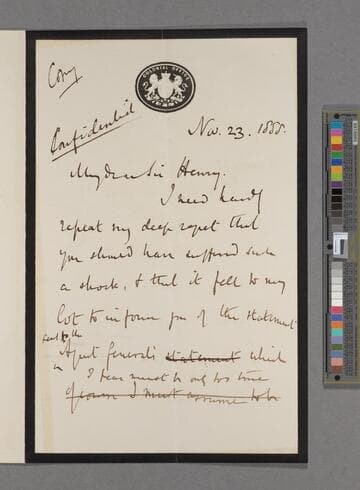 Copy
COLONIAL OFFICE
Confidential
Nov. 23. 1888.
My dear Sir Henry.
I need hardly
repeat my deep regret that
you should have suffered such
a shock, & that it fell to my
lot to inform you of the statement
sent to the
Agent General's statement which
in
I fear must be only too true
of course I must assume to be